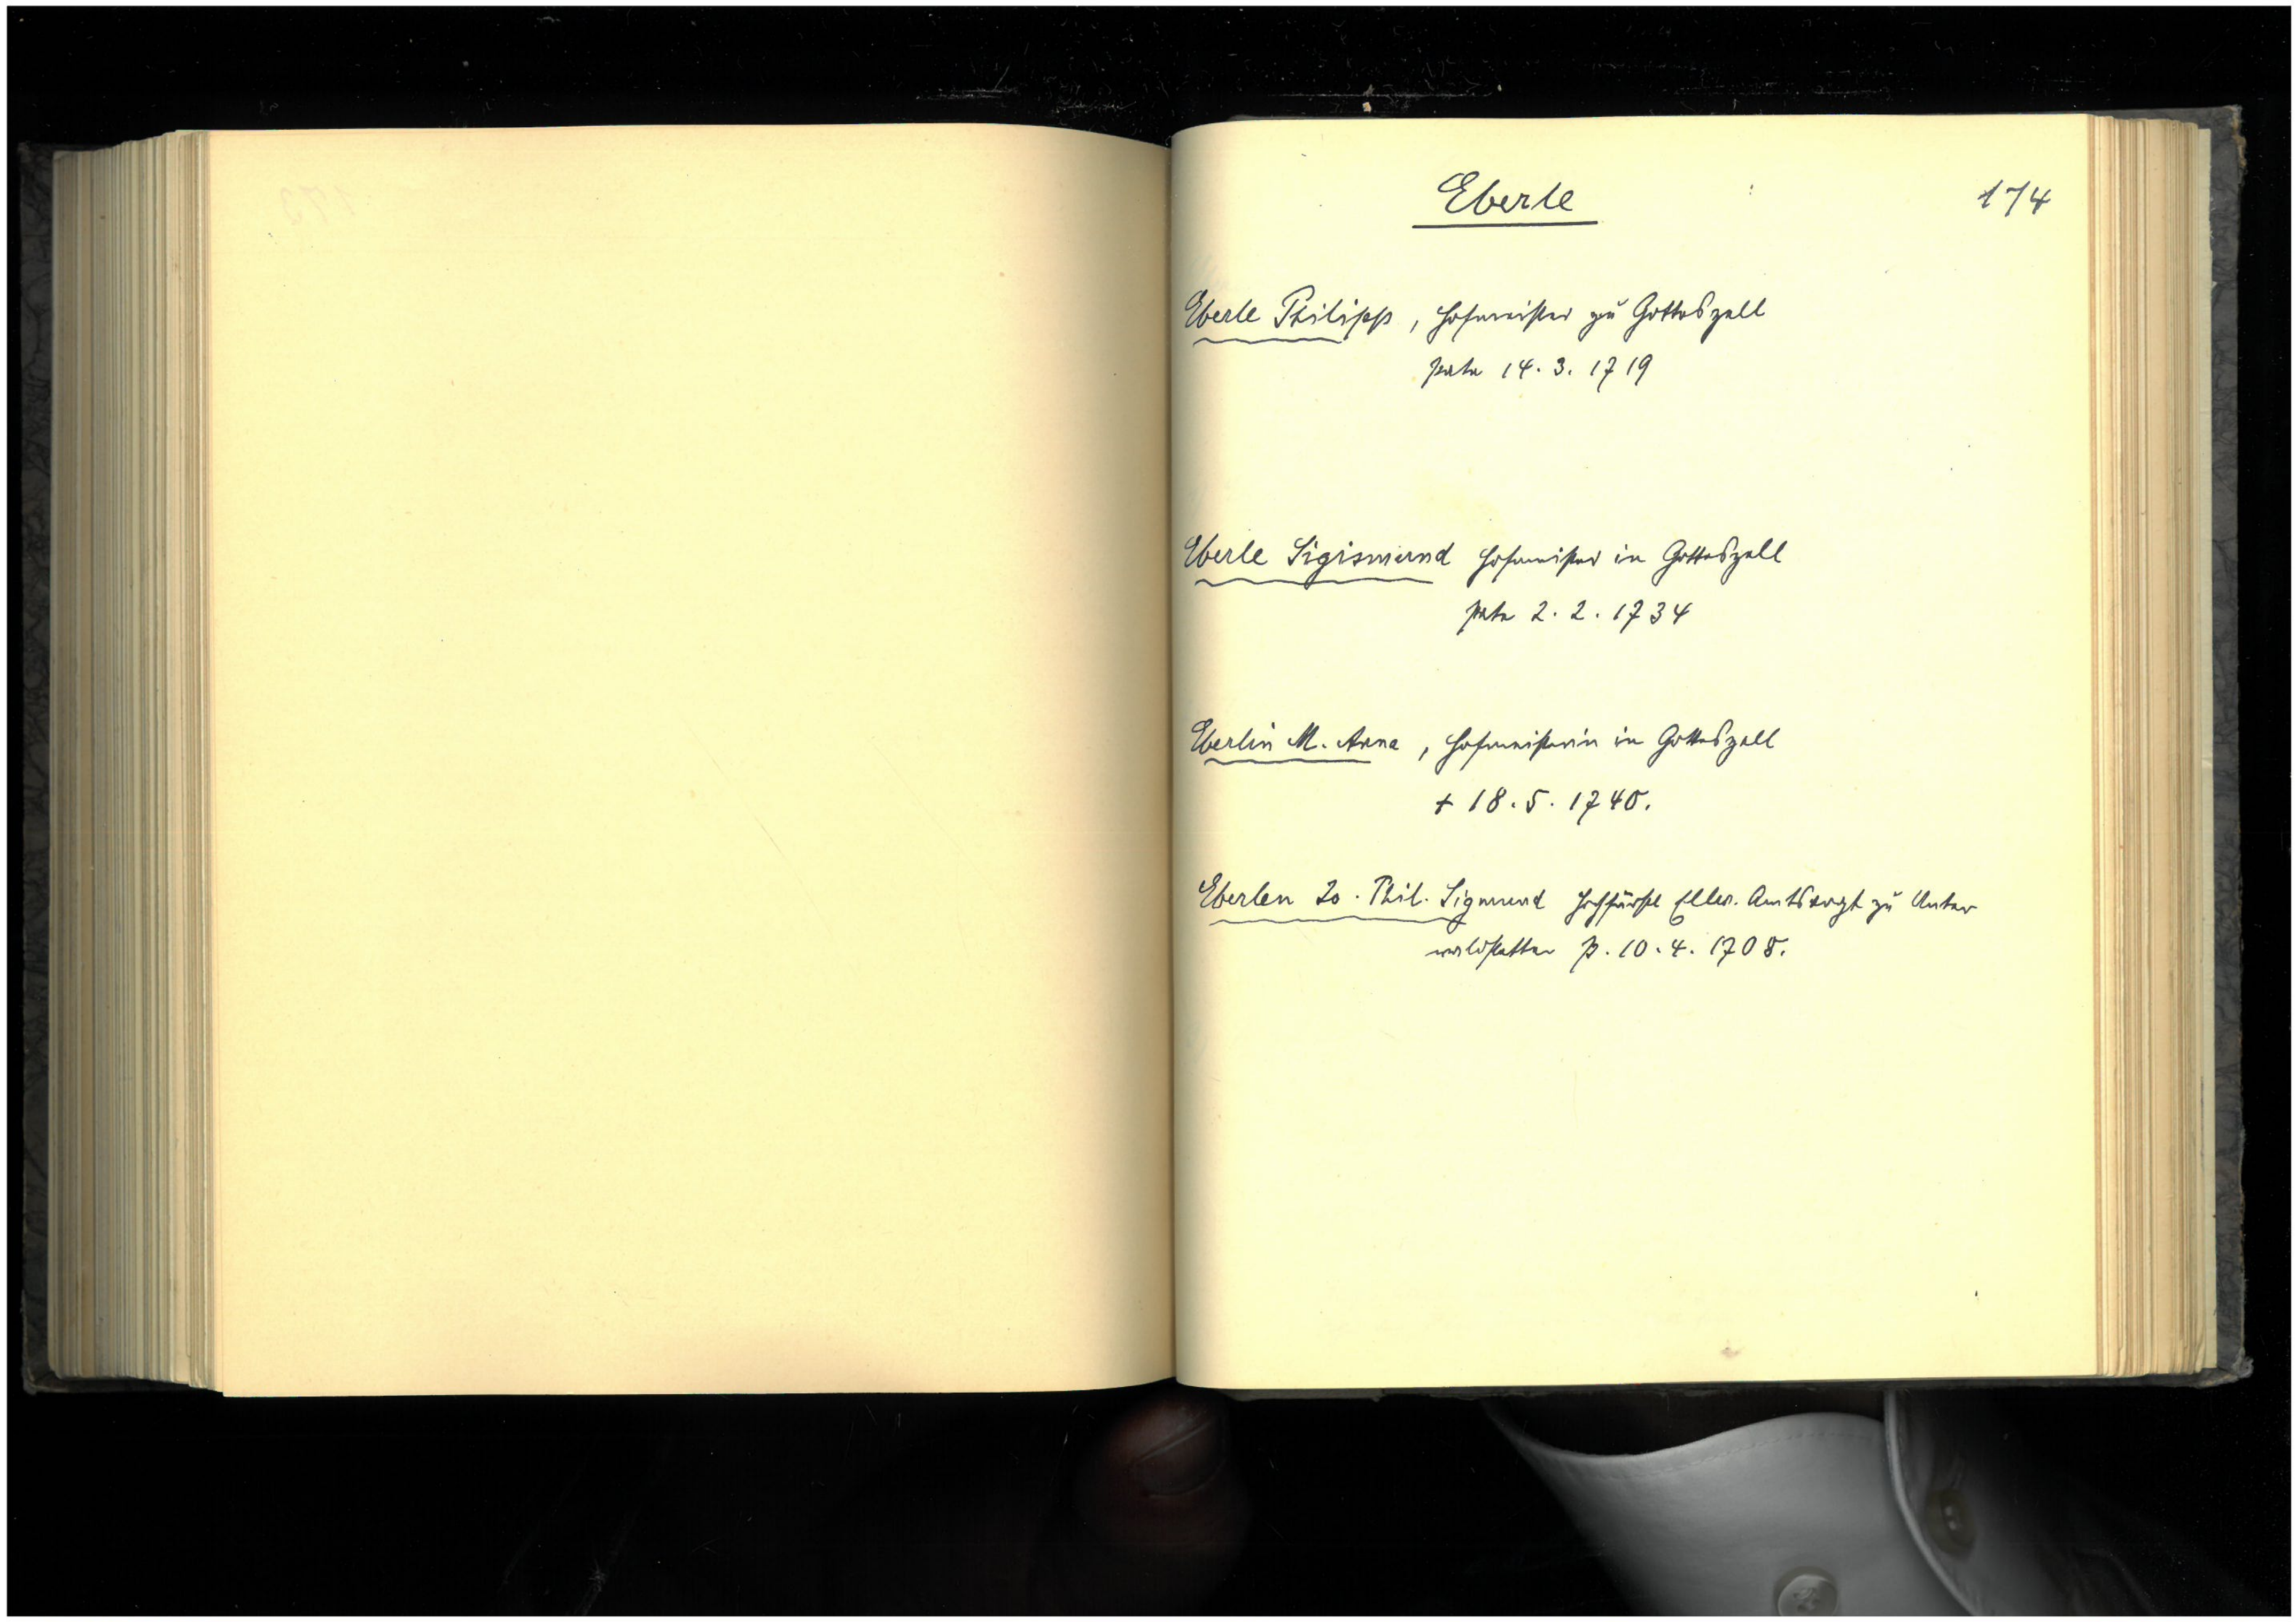 Eberle
174
Eberle Philipp, Hofmeister zu Gotteszell
Pate 14. 3. 1719
Eberle Sigismund Hofmeister in Gotteszell
Pate 2. 2. 1734
Eberlin M. Anna, Hofmeisterin in Gotteszell
+ 18. 5. 1740.
Eberlen Jo. Phil. Sigmund Hochfürstl Ellw. Amtsvogt zu Unter
P. 10. 4. 1708.